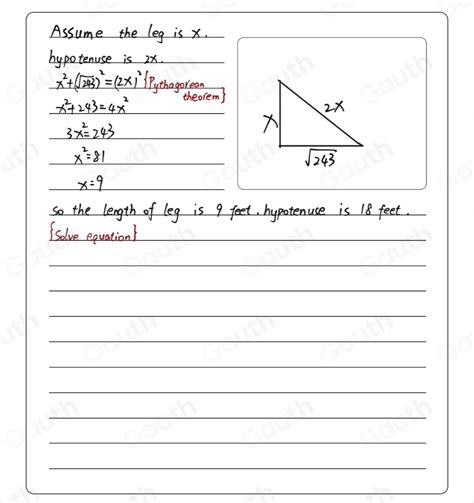 Assume the leg is x.
hypotenuse is 2x.
x²+(√243)²=(2x)² {Pythagorean
theorem}
x²+243=4x²
3x²=243
x²=81
x=9
x
2x
√243
so the length of leg is 9 feet, hypotenuse is 18 feet.
{Solve equation}
Gauth